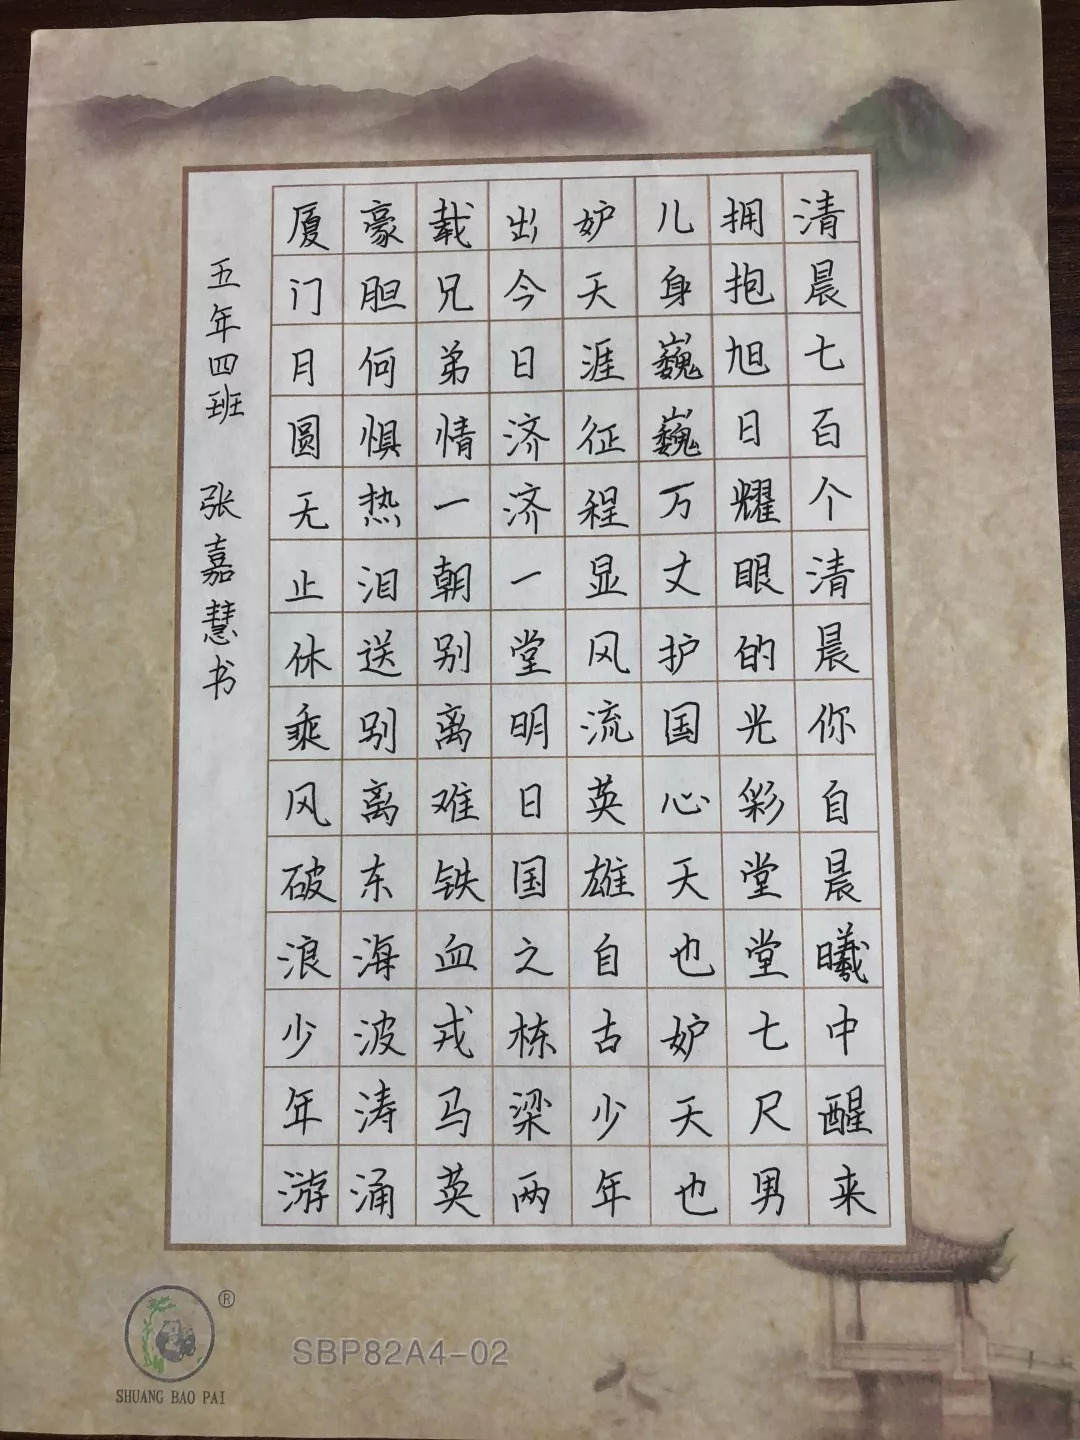 清晨七百个清晨你自晨曦中醒来
拥抱旭日耀眼的光彩堂堂七尺男
儿身巍巍万丈护国心天也妒天也
妒天涯征程显风流英雄自古少年
出今日济济一堂明日国之栋梁两
载兄弟情一朝别离难铁血戎马英
豪胆何惧热泪送别离东海波涛涌
厦门月圆无止休乘风破浪少年游
五年四班 张嘉慧书
®
SHUANG BAO PAI
SBP82A4-02